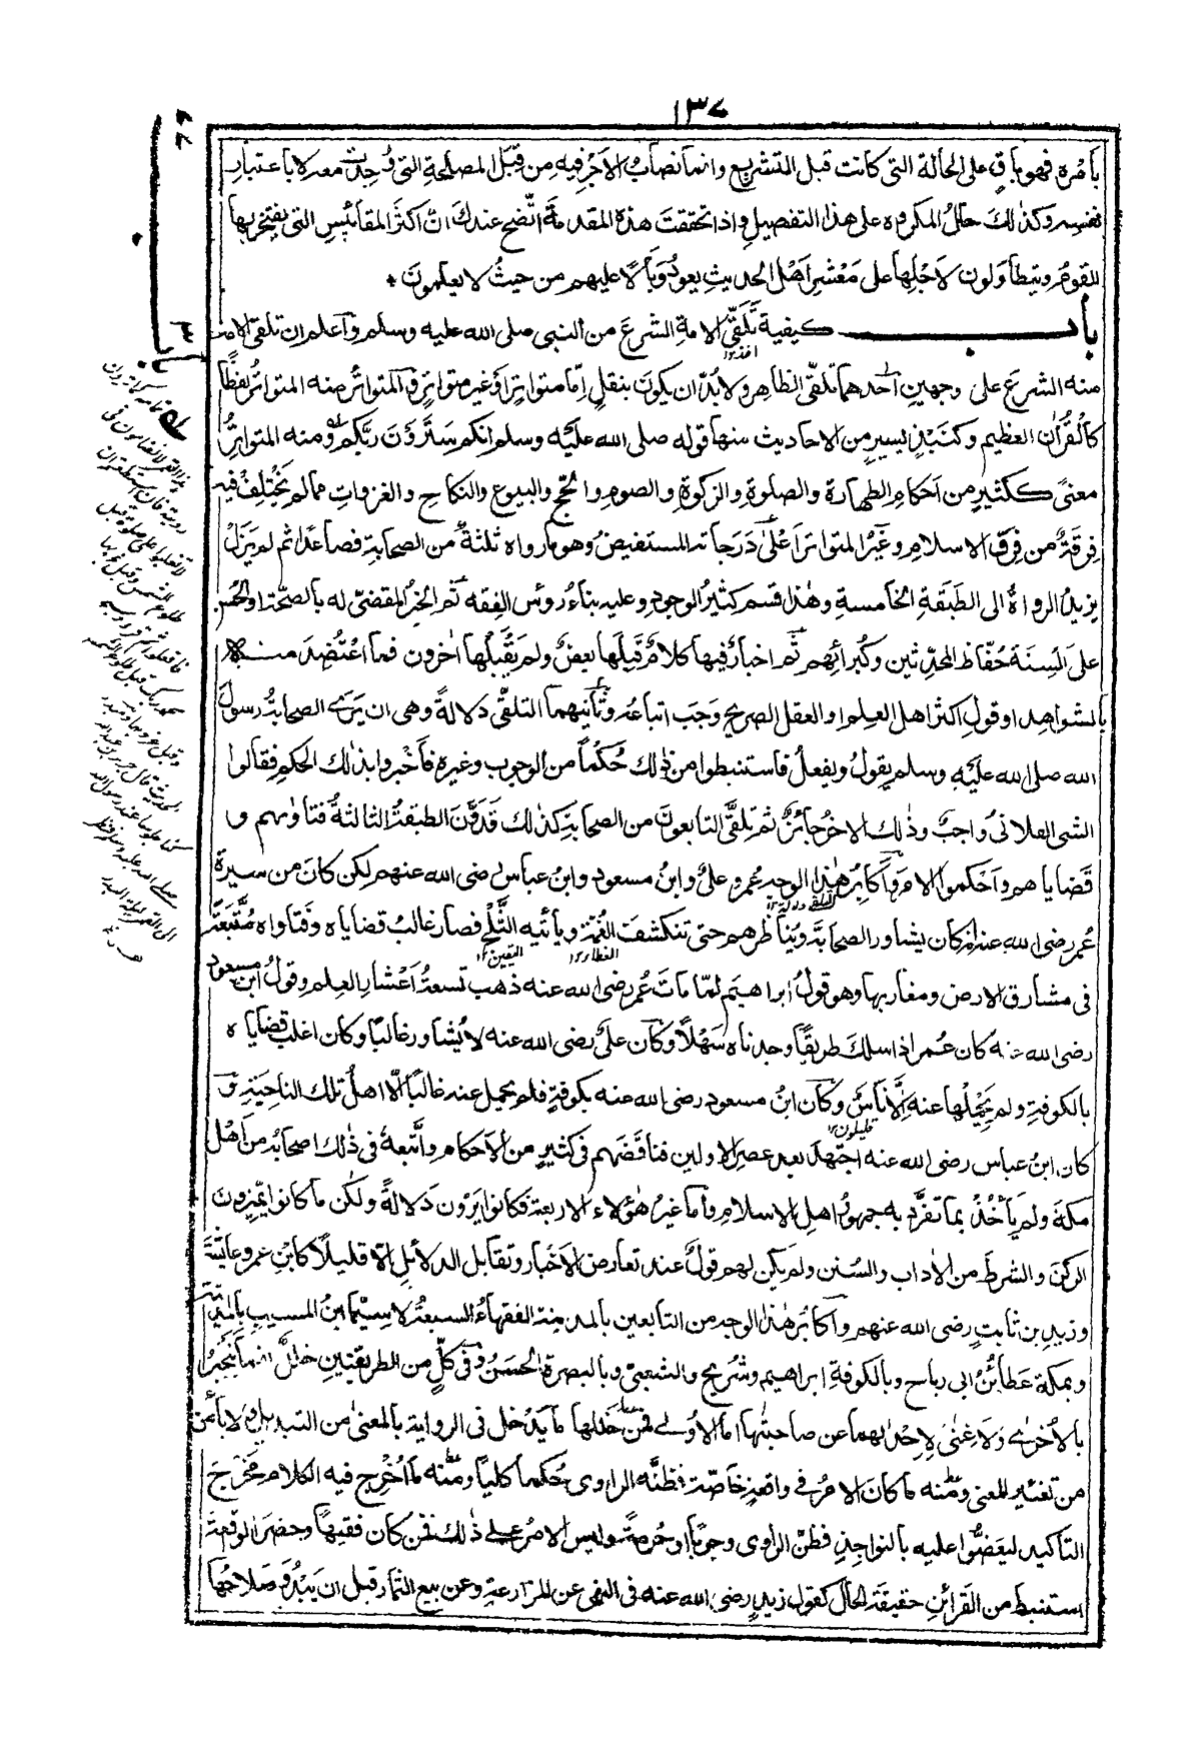 ١٣٧
بأمره فهو باقٍ على الحالة التى كانت قبل التشريع وانما نصابُ الاجرِ فيه من قِبَل المصلحةِ التى وُجِدَت معه لا باعتبارِ
نفسِه وكذٰلكَ حالُ المكروه على هذا التفصيلِ واذا تحققتَ هذه المقدمةَ اتَّضح عندكَ انَّ اكثرَ المقائيسِ التى يفتخر بها
القومُ ويتطاولون لاَجْلِها على مَعْشَرِ اَهْل الحديثِ يعودُ وَبالًا عليهم من حيثُ لا يعلمونَ *
بابــ كيفية تَلَقّى الامةِ الشرعَ من النبى صلى الله عليه وسلم وآعلم ان تلقى الامة
منه الشرعَ على وجهينِ اَحدهما تلقّى الظاهرِ ولا بُدَّ ان يكونَ بنقلٍ اِمّا متواترًا وغيرِ متواترٍ والمتواترُ منه المتواترُ لفظًا
كالقُرآن العظيم وكنَبْذٍ يسيرٍ من الاحاديث منها قوله صلى الله عليه وسلم انكم سَتَرَوْنَ رَبَّكم ومنه المتواترُ
معنىً ككثيرٍ من اَحكامِ الطهارة والصلوةِ والزكوةِ والصومِ والحجِّ والبيوعِ والنكاحِ والغزواتِ مما لم يَخْتَلِفْ فيه
فِرقةٌ من فِرَقِ الاسلامِ وغَيْرُ المتواترِ اَعْلٰى دَرَجاته المستفيضُ وهو ما رواه ثلثةٌ من الصحابةِ فصاعدًا ثم لم يَزَلْ
يزيدُ الرواةُ الى الطَبَقةِ الخامسةِ وهٰذا قسم كثيرُ الوجودِ وعليه بناءُ رؤس الفِقه ثم الخبرُ المقضىُّ له بالصحّة او الحُسْنِ
على اَلْسِنَةِ حُفّاظ المحدّثين وكُبرائِهم ثم اخبارٌ فيها كلامٌ قَبِلَها بعضٌ ولم يَقْبَلْها اٰخرون فما اعْتُضِدَ منها
بالشواهدِ او قولِ اكثرِ اهلِ العِلمِ او العقلِ الصريحِ وَجَبَ اتباعُه وثانيهما التلقّى دلالةً وهى ان يَرٰى الصحابةُ رسولَ
الله صلى الله عليه وسلم يقولُ ويفعلُ فاستنبطوا من ذٰلك حُكْمًا من الوجوب وغيرِه فاَخْبروا بذٰلك الحكمِ فقالوا
الشئ الفلانىُّ واجبٌ وذٰلك الاخرُ جائزٌ ثم تلقَّى التابعونَ من الصحابةِ كذٰلك فَدَوَّنَ الطبقةُ الثالثةُ فتاوٰىهم و
قضاياهم واَحْكموا الامرَ واَكابرُ هٰذا الوجهِ عُمرُ وعلىٌّ وابنُ مسعودٍ وابنُ عباسٍ رضى الله عنهم لكن كانَ من سيرةِ
عُمر رضى الله عنه انه كان يشاور الصحابةَ ويُناظرهم حتى تنكشفَ الغُمّةُ ويأتيه الثَّلْجُ فصار غالبُ قضاياه وفتاواه مُتَّبَعةً
فى مشارق الارض ومغاربها وهو قولُ ابراهيمَ لمّا ماتَ عُمر رضى الله عنه ذهب تسعةُ اَعْشار العِلمِ وقولُ ابنِ مسعودٍ
رضى الله عنه كان عُمر اذا سلك طريقًا وجدناه سَهْلًا وكانَ علىٌّ رضى الله عنه لا يُشاور غالبًا وكان اغلب قضاياه
بالكوفةِ ولم يَحْمِلْها عنه اِلَّا ناسٌ وكانَ ابنُ مسعودٍ رضى الله عنه بكوفةٍ فلم يحمل عنه غالبًا الّا اهلُ تلك الناحيةِ و
كان ابنُ عباسٍ رضى الله عنه اجتهد بعد عصرِ الاولين فناقَضَهم فى كثيرٍ من الاَحكام واتَّبعَه فى ذٰلك اصحابُه من اَهْل
مكةَ ولم يَأْخُذْ بما تفرَّد به جمهورُ اهلِ الاسلامِ واما غيرُ هٰؤلاءِ الاربعةِ فكانوا يَرَوْن دَلالةً ولكن ما كانوا يميّزون
الركنَ والشرطَ من الاٰداب والسُنن ولم يكن لهم قولٌ عند تعارض الاَخبار وتقابل الدلائلِ اِلّا قليلًا كابنِ عمر وعائشةَ
وزيدِ بن ثابتٍ رضى الله عنهم واَكابرُ هٰذا الوجه من التابعين بالمدينة الفقهاءُ السبعةُ لا سِيَّما ابنُ المسيبِ بالمدينةِ
وبمكة عَطاءُ بْنُ ابى رباحٍ وبالكوفةِ ابراهيم وشُرَيح والشعبىّ وبالبصرة الحَسَنُ وفى كلٍّ من الطريقتينِ خللٌ انما يَنْجَبِرُ
بالاُخرٰى ولا غِنٰى لاِحْدٰىهما عن صاحبتِها اما الاُولٰى فمن خَلَلِها ما يَدْخل فى الرواية بالمعنٰى من التبديلِ ولا يأمن
من تغيير المعنى ومنه ما كانَ الامرُ فى واقعةٍ خاصّة فظنَّه الراوى حُكمًا كليًا ومنه ما اُخْرِج فيه الكلام مَخْرَجَ
التأكيد ليَعَضُّوا عليه بالنواجذِ فظنّ الراوى وجوبًا او حُرمةً وليس الامرُ على ذٰلك فمن كان فقيهًا وحضر الواقعةَ
استنبطَ من القَرائنِ حقيقةَ الحالِ كقول زيدٍ رضى الله عنه فى النهى عن المزارعةِ وعن بيع الثمار قبل ان يَبْدُوَ صَلاحُها